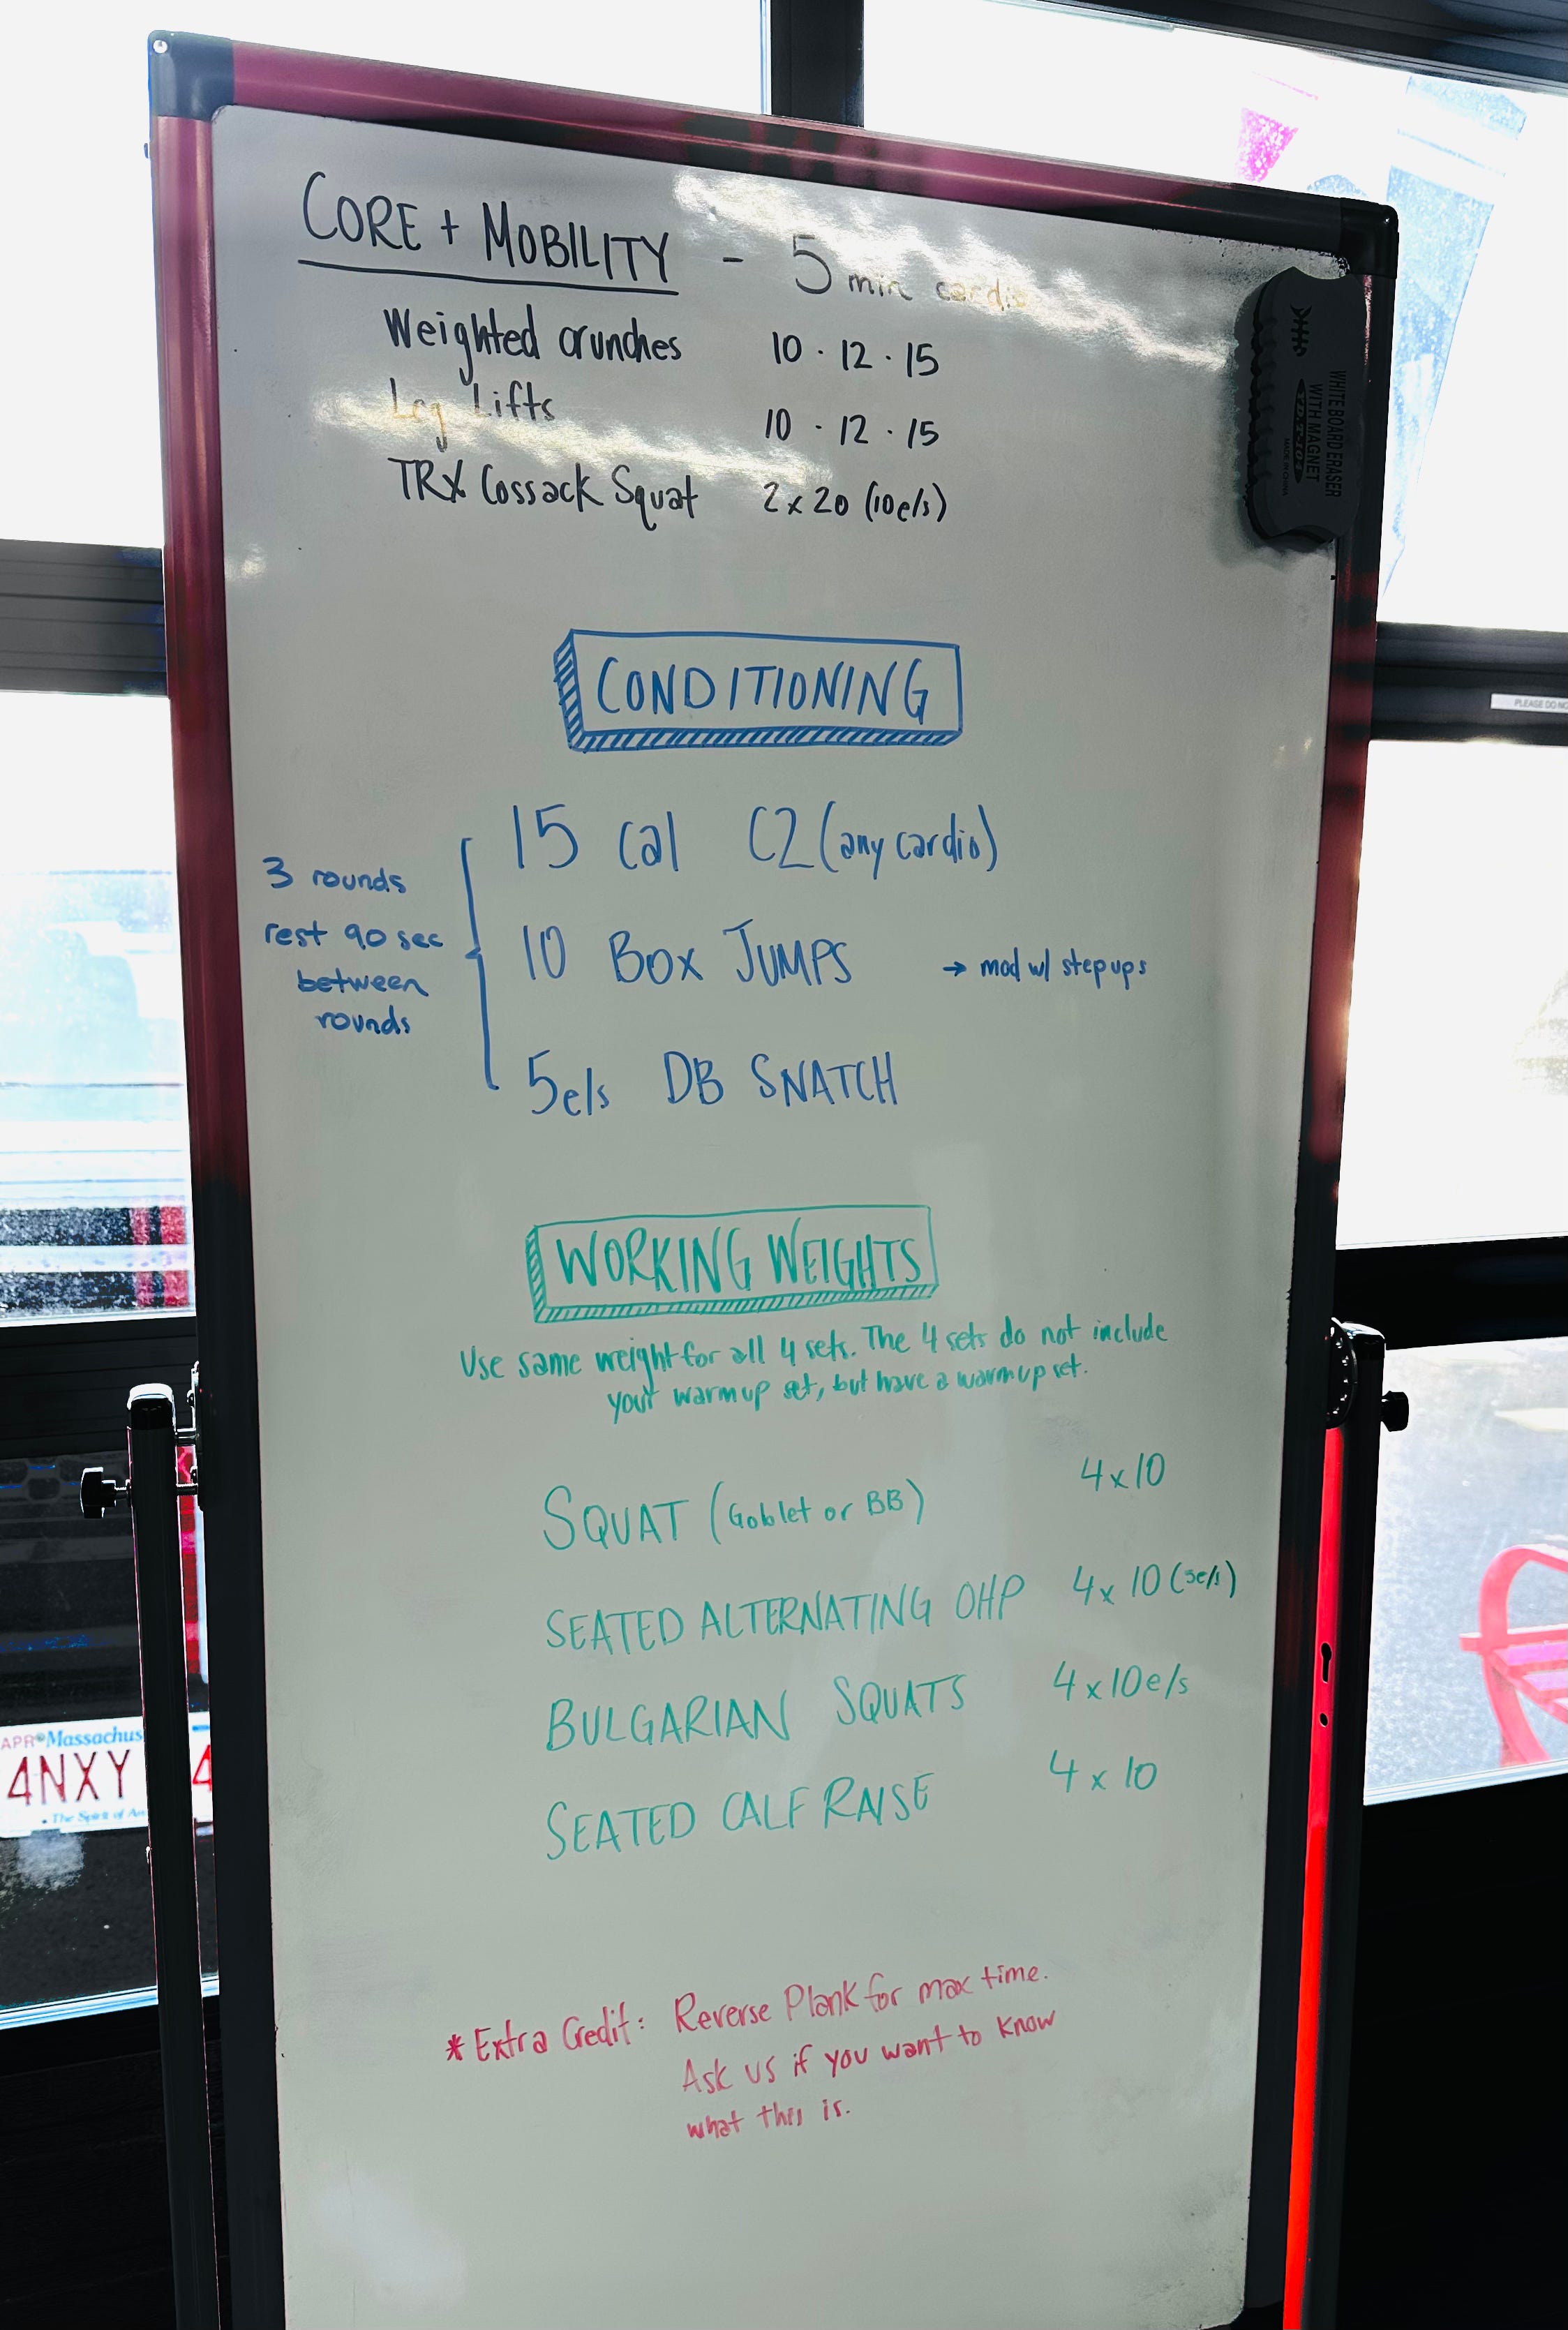 CORE + MOBILITY - 5 min cardio
Weighted crunches 10 · 12 · 15
Leg Lifts 10 · 12 · 15
TRX Cossack Squat 2 x 20 (10e/s)
WHITE BOARD ERASER
WITH MAGNET
MADE IN CHINA
CONDITIONING
PLEASE DO NO
3 rounds
rest 90 sec
between
rounds
15 Cal C2 (any cardio)
10 BOX JUMPS → mod w/ step ups
5e/s DB SNATCH
WORKING WEIGHTS
Use same weight for all 4 sets. The 4 sets do not include
your warmup set, but have a warmup set.
SQUAT (Goblet or BB) 4 x 10
SEATED ALTERNATING OHP 4 x 10 (5e/s)
BULGARIAN SQUATS 4 x 10e/s
SEATED CALF RAISE 4 x 10
APR Massachus
4NXY 4
The Spirit of Am
* Extra Credit: Reverse Plank for max time.
Ask us if you want to know
what this is.